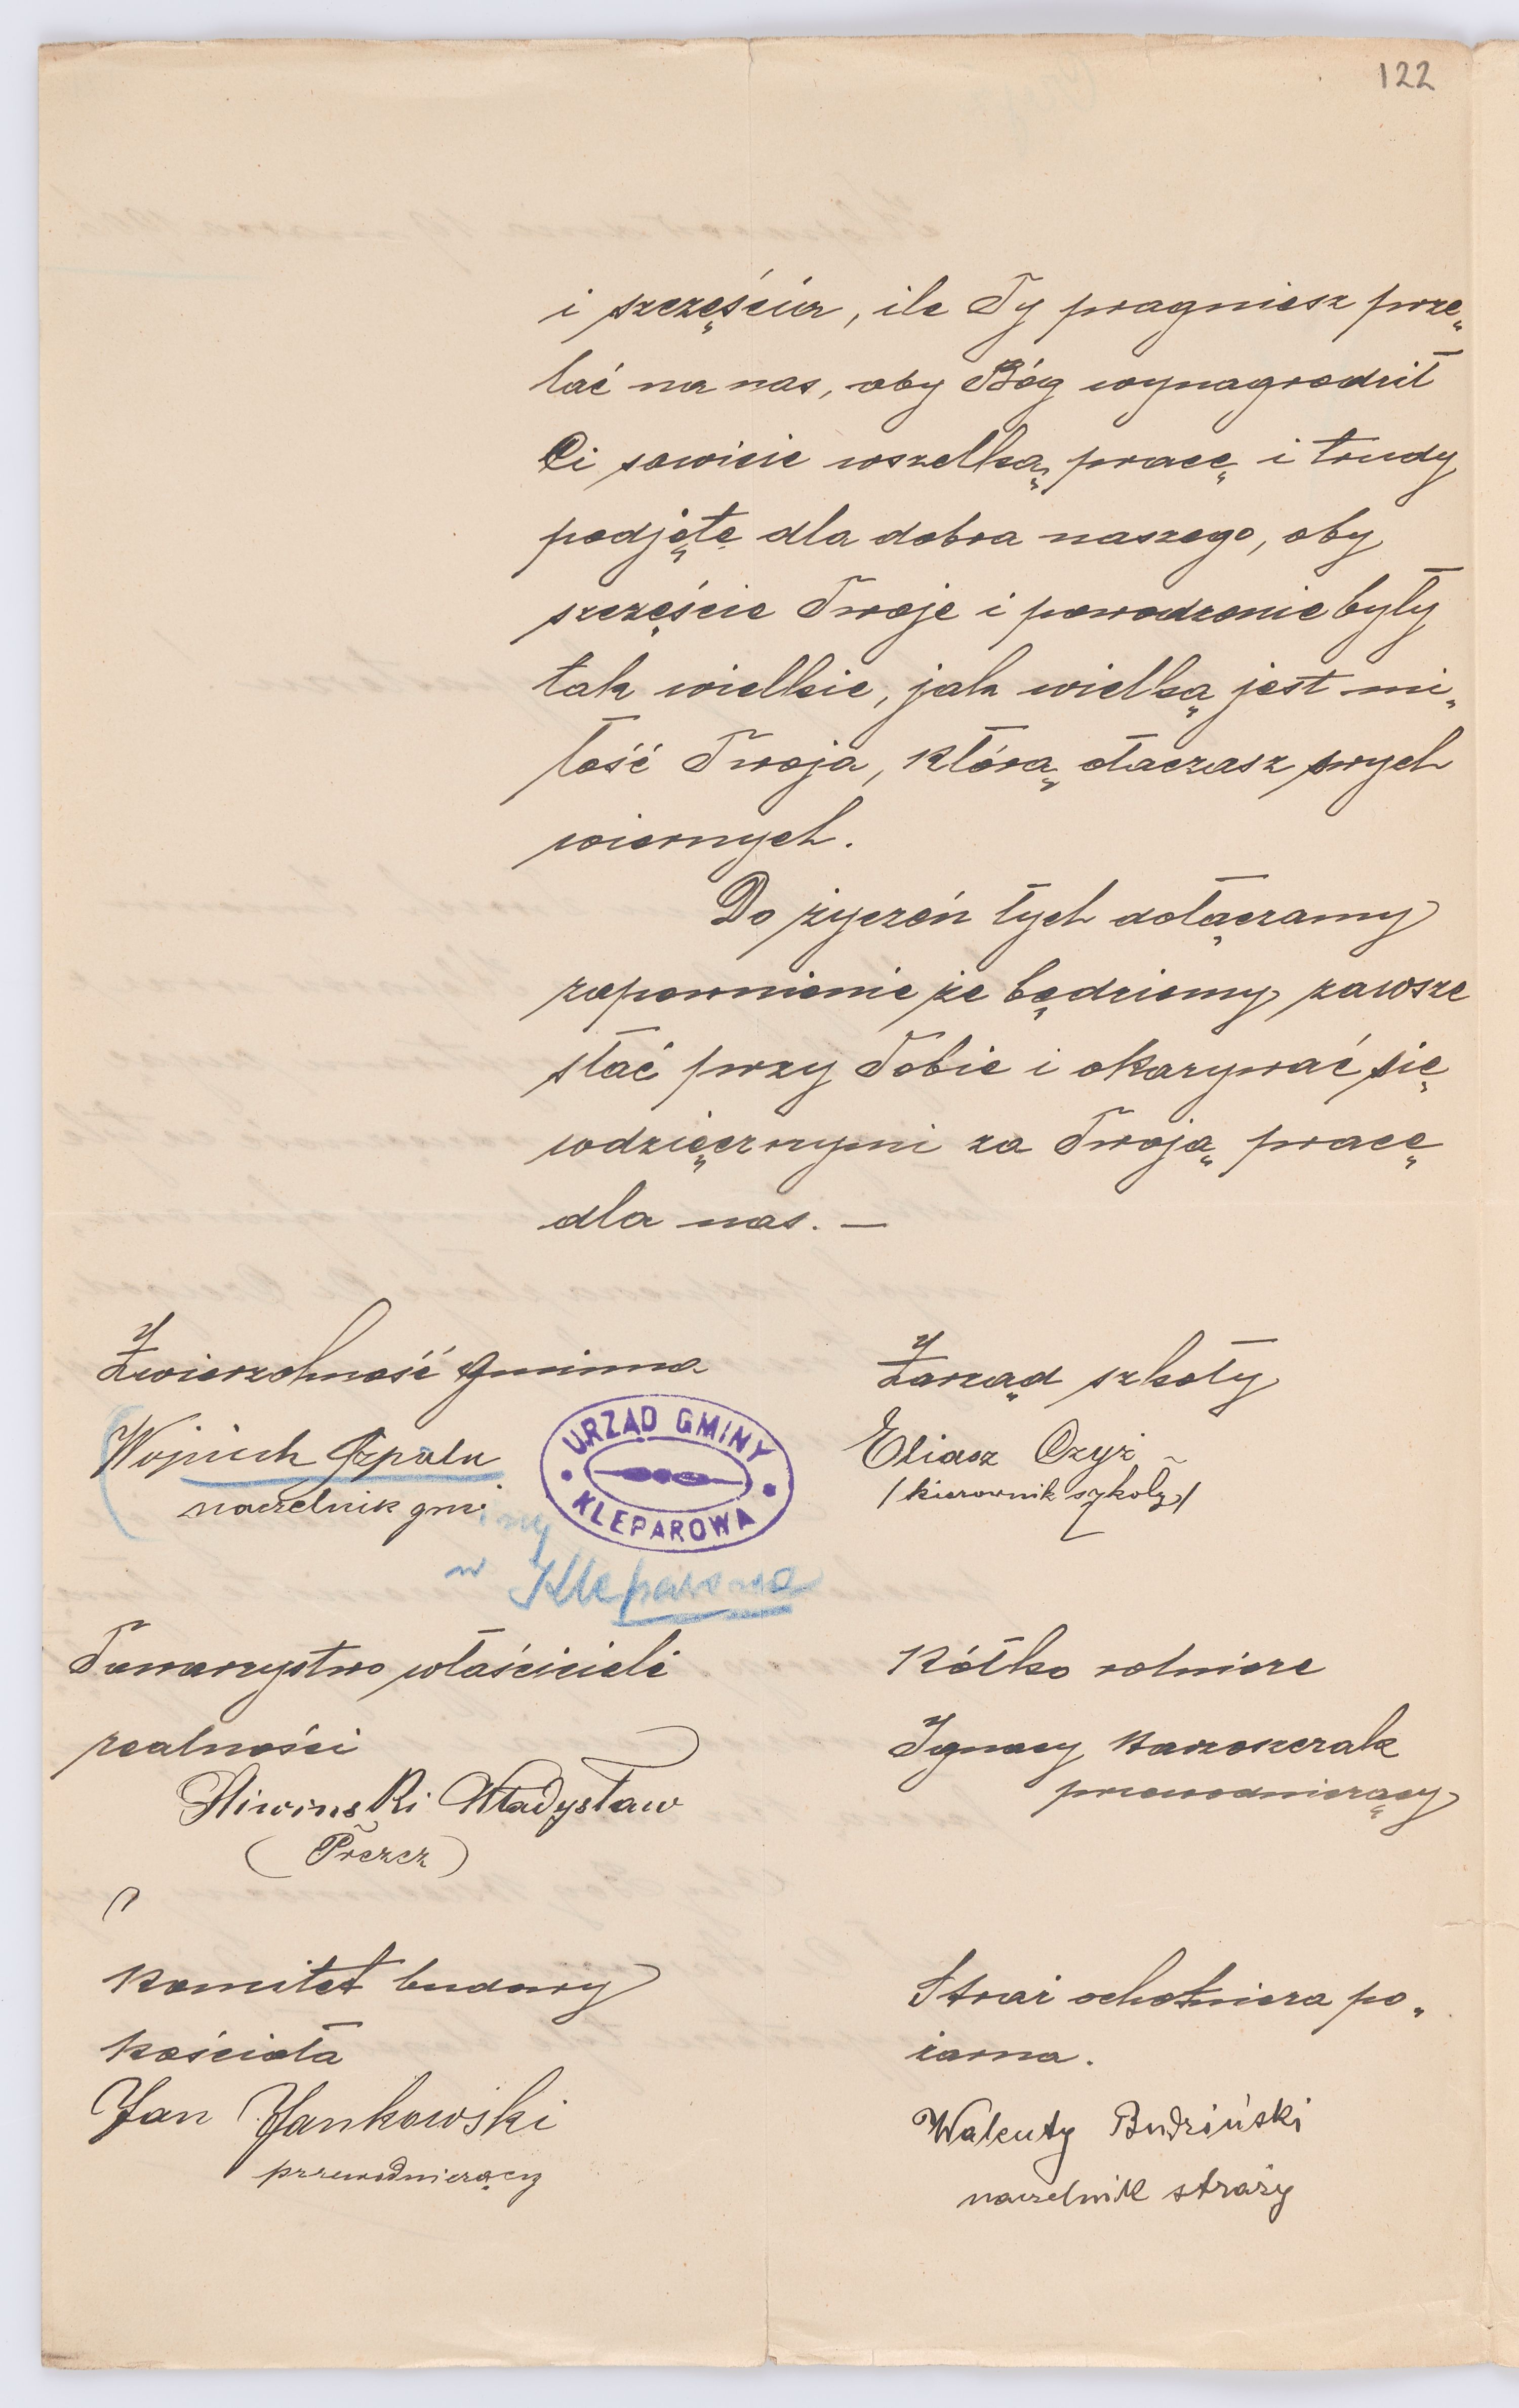 122
i szczęścia, ile Ty pragniesz prze„
lać na nas, aby Bóg wynagrodził
Ci sowicie wszelką pracę i trudy
podjęte dla dobra naszego, oby
szczęście Twoje i powodzenie były
tak wielkie, jak wielką jest mi„
łość Twoja, którą otaczasz swych
wiernych.
Do życzeń tych dołączamy
zapewnienie że będziemy zawsze
stać przy Tobie i okazywać się
wdzięcznymi za Twoją pracę
dla nas. —
Zwierzchność gminna
Wojciech
naczelnik gminy
w Kleparowa
URZĄD GMINY
KLEPAROWA
Zarząd szkoły
Eliasz Czyż
/kierownik szkoły/
Towarzystwo właścicieli
realności
Śliwinski Władysław
(Prezez)
Kółko rolnicze
Ignacy
przewodniczący
Komitet budowy
kościoła
Jan Jankowski
przewodniczący
Straż ochotnicza po„
żarna.
Walenty Budziński
naczelnik straży